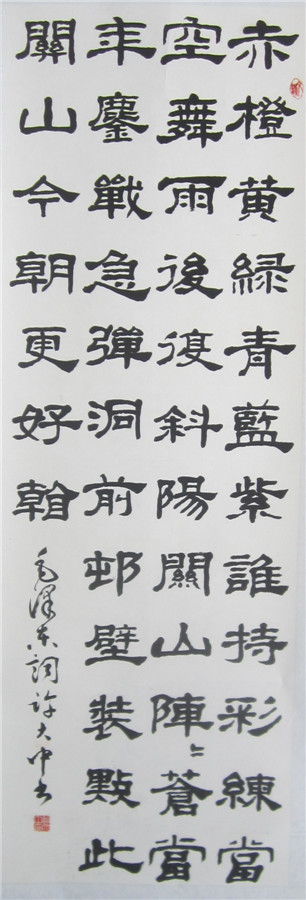 赤橙黄緑青藍紫誰持彩練當
空舞雨後復斜陽關山陣〻蒼當
年鏖戰急彈洞前邨壁裝點此
關山今朝更好看
毛澤東詞許大中书